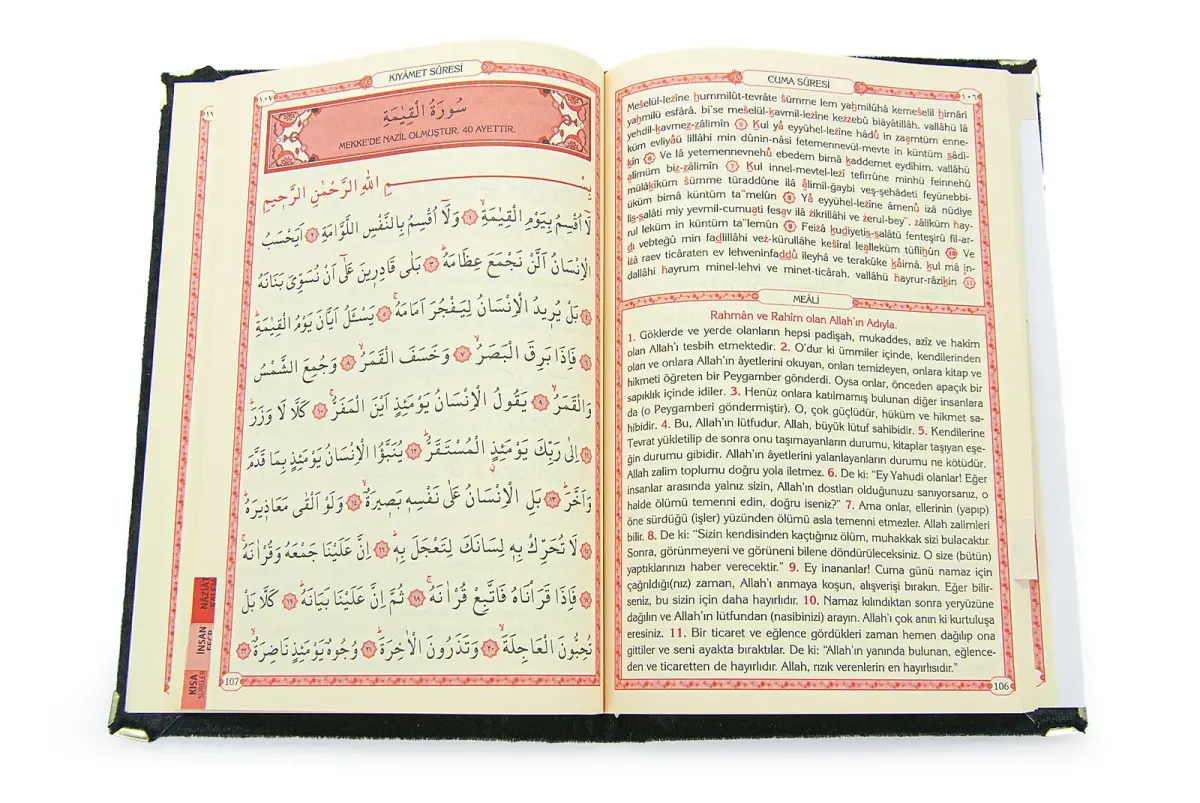 CUMA SÛRESİ
١٠٦
Meŝelül-lezîne hummilût-tevrâte ŝümme lem yahmilûhâ kemeŝelil himâri
yahmilü esfârâ. bi'se meŝelül-kavmil-lezîne kezzebû biâyâtillâh. vallâhü lâ
yehdil-kavmez-zâlimîn 5 Kul yâ eyyühel-lezîne hâdû in zaamtüm enne-
küm evliyâü lillâhi min dûnin-nâsi fetemennevül-mevte in küntüm sâdi-
kîn 6 Ve lâ yetemennevnehû ebedem bimâ kaddemet eydîhim. vallâhü
alîmüm biz-zâlimîn 7 Kul innel-mevtel-lezî tefirrûne minhü feinnehû
mülâkîküm ŝümme türaddûne ilâ âlimil-ğaybi veş-şehâdeti feyünebbi-
üküm bimâ küntüm ta"melûn 8 Yâ eyyühel-lezîne âmenû izâ nûdiye
lis-salâti miy yevmil-cumuati fesav ilâ zikrillâhi ve zerul-bey". zâliküm hay-
rul leküm in küntüm ta"lemûn 9 Feizâ kudiyetis-salâtü fenteşirû fil-ar-
dı vebteğû min fadlillâhi vez-kürullâhe keŝîral lealleküm tüflihûn 10 Ve
izâ raev ticâraten ev lehveninfaddû ileyhâ ve terakûke kâimâ. kul mâ in-
dallâhi hayrum minel-lehvi ve minet-ticârah. vallâhü hayrur-râzikîn 11
MEÂLİ
Rahmân ve Rahîm olan Allah'ın Adıyla.
1. Göklerde ve yerde olanların hepsi padişah, mukaddes, azîz ve hakîm
olan Allah'ı tesbih etmektedir. 2. O'dur ki ümmiler içinde, kendilerinden
olan ve onlara Allah'ın âyetlerini okuyan, onları temizleyen, onlara kitap ve
hikmeti öğreten bir Peygamber gönderdi. Oysa onlar, önceden apaçık bir
sapıklık içinde idiler. 3. Henüz onlara katılmamış bulunan diğer insanlara
da (o Peygamberi göndermiştir). O, çok güçlüdür, hüküm ve hikmet sa-
hibidir. 4. Bu, Allah'ın lütfudur. Allah, büyük lütuf sahibidir. 5. Kendilerine
Tevrat yükletilip de sonra onu taşımayanların durumu, kitaplar taşıyan eşe-
ğin durumu gibidir. Allah'ın âyetlerini yalanlayanların durumu ne kötüdür.
Allah zalim toplumu doğru yola iletmez. 6. De ki: "Ey Yahudi olanlar! Eğer
insanlar arasında yalnız sizin, Allah'ın dostları olduğunuzu sanıyorsanız, o
halde ölümü temenni edin, doğru iseniz?" 7. Ama onlar, ellerinin (yapıp)
öne sürdüğü (işler) yüzünden ölümü asla temenni etmezler. Allah zalimleri
bilir. 8. De ki: "Sizin kendisinden kaçtığınız ölüm, muhakkak sizi bulacaktır.
Sonra, görünmeyeni ve görüneni bilene döndürüleceksiniz. O size (bütün)
yaptıklarınızı haber verecektir." 9. Ey inananlar! Cuma günü namaz için
çağrıldığı(nız) zaman, Allah'ı anmaya koşun, alışverişi bırakın. Eğer bilir-
seniz, bu sizin için daha hayırlıdır. 10. Namaz kılındıktan sonra yeryüzüne
dağılın ve Allah'ın lütfundan (nasibinizi) arayın. Allah'ı çok anın ki kurtuluşa
eresiniz. 11. Bir ticaret ve eğlence gördükleri zaman hemen dağılıp ona
gittiler ve seni ayakta bıraktılar. De ki: "Allah'ın yanında bulunan, eğlence-
den ve ticaretten de hayırlıdır. Allah, rızık verenlerin en hayırlısıdır."
106
KIYÂMET SÛRESİ
١٠٧
سُورَةُ الْقِيٰمَةِ
MEKKE'DE NAZİL OLMUŞTUR. 40 AYETTİR.
بِسْمِ اللّٰهِ الرَّحْمٰنِ الرَّحٖيمِ
لَٓا اُقْسِمُ بِيَوْمِ الْقِيٰمَةِۙ ﴿١﴾ وَلَٓا اُقْسِمُ بِالنَّفْسِ اللَّوَّامَةِ ﴿٢﴾ اَيَحْسَبُ
الْاِنْسَانُ اَلَّنْ نَجْمَعَ عِظَامَهُۜ ﴿٣﴾ بَلٰى قَادِرٖينَ عَلٰٓى اَنْ نُسَوِّيَ بَنَانَهُ
﴿٤﴾ بَلْ يُرٖيدُ الْاِنْسَانُ لِيَفْجُرَ اَمَامَهُۚ ﴿٥﴾ يَسْـَٔلُ اَيَّانَ يَوْمُ الْقِيٰمَةِۜ
﴿٦﴾ فَاِذَا بَرِقَ الْبَصَرُۙ ﴿٧﴾ وَخَسَفَ الْقَمَرُۙ ﴿٨﴾ وَجُمِعَ الشَّمْسُ
وَالْقَمَرُۙ ﴿٩﴾ يَقُولُ الْاِنْسَانُ يَوْمَئِذٍ اَيْنَ الْمَفَرُّۚ ﴿١٠﴾ كَلَّا لَا وَزَرَۜ
﴿١١﴾ اِلٰى رَبِّكَ يَوْمَئِذٍ الْمُسْتَقَرُّۜ ﴿١٢﴾ يُنَبَّؤُا الْاِنْسَانُ يَوْمَئِذٍ بِمَا قَدَّمَ
وَاَخَّرَۜ ﴿١٣﴾ بَلِ الْاِنْسَانُ عَلٰى نَفْسِهٖ بَصٖيرَةٌۙ ﴿١٤﴾ وَلَوْ اَلْقٰى مَعَاذٖيرَهُۜ
﴿١٥﴾ لَا تُحَرِّكْ بِهٖ لِسَانَكَ لِتَعْجَلَ بِهٖۜ ﴿١٦﴾ اِنَّ عَلَيْنَا جَمْعَهُ وَقُرْاٰنَهُۚ
﴿١٧﴾ فَاِذَا قَرَأْنَاهُ فَاتَّبِعْ قُرْاٰنَهُۚ ﴿١٨﴾ ثُمَّ اِنَّ عَلَيْنَا بَيَانَهُۜ ﴿١٩﴾ كَلَّا بَلْ
تُحِبُّونَ الْعَاجِلَةَۙ ﴿٢٠﴾ وَتَذَرُونَ الْاٰخِرَةَۜ ﴿٢١﴾ وُجُوهٌ يَوْمَئِذٍ نَاضِرَةٌۙ ﴿٢٢﴾
107
NÂZİAT
İNSAN
KISA
SÛRELER